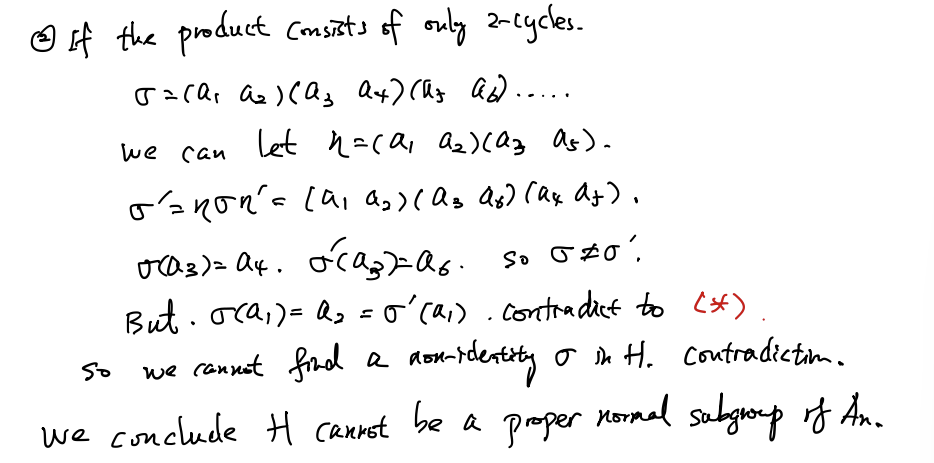 ② If the product consists of only 2-cycles.
σ=(a₁ a₂)(a₃ a₄)(a₅ a₆).....
we can let η=(a₁ a₂)(a₃ a₅).
σ'=ηση'=(a₁ a₂)(a₃ a₆)(a₄ a₅).
σ(a₃)=a₄. σ'(a₃)=a₆. so σ≠σ'.
But. σ(a₁)=a₂=σ'(a₁). contradict to (*).
so we cannot find a non-identity σ in H. contradiction.
we conclude H cannot be a proper normal subgroup of An.